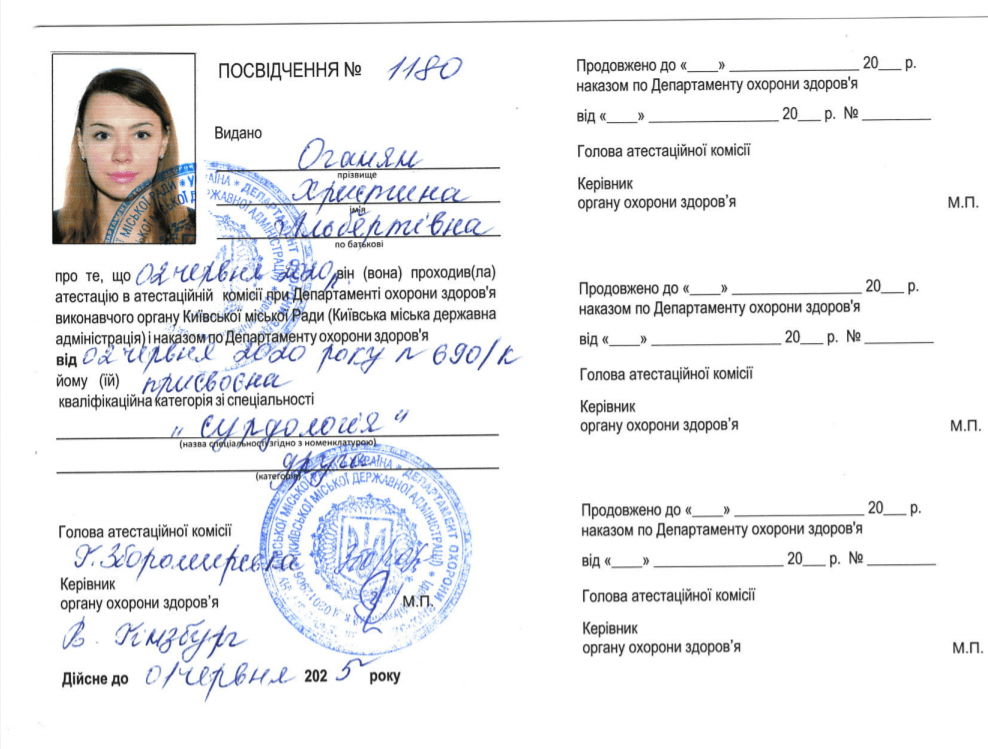 ПОСВІДЧЕННЯ № 1180
Видано
Оганян
прізвище
Христина
імя
Альбертівна
по батькові
про те, що 02 червня 2020 р він (вона) проходив(ла)
атестацію в атестаційній комісії при Департаменті охорони здоров'я
виконавчого органу Київської міської Ради (Київська міська державна
адміністрація) і наказом по Департаменту охорони здоров'я
від 02 червня 2020 року № 690/к
йому (їй) присвоєна
кваліфікаційна категорія зі спеціальності
" Сурдологія "
(назва спеціальності згідно з номенклатурою)
друга
(категорія)
Голова атестаційної комісії
Г. Збромирська
Керівник
органу охорони здоров'я М.П.
В. Гінзбург
Дійсне до 01 червня 2025 року
Продовжено до «____» ________________ 20___ р.
наказом по Департаменту охорони здоров'я
від «____» ________________ 20___ р. № _________
Голова атестаційної комісії
Керівник
органу охорони здоров'я М.П.
Продовжено до «____» ________________ 20___ р.
наказом по Департаменту охорони здоров'я
від «____» ________________ 20___ р. № _________
Голова атестаційної комісії
Керівник
органу охорони здоров'я М.П.
Продовжено до «____» ________________ 20___ р.
наказом по Департаменту охорони здоров'я
від «____» ________________ 20___ р. № _________
Голова атестаційної комісії
Керівник
органу охорони здоров'я М.П.